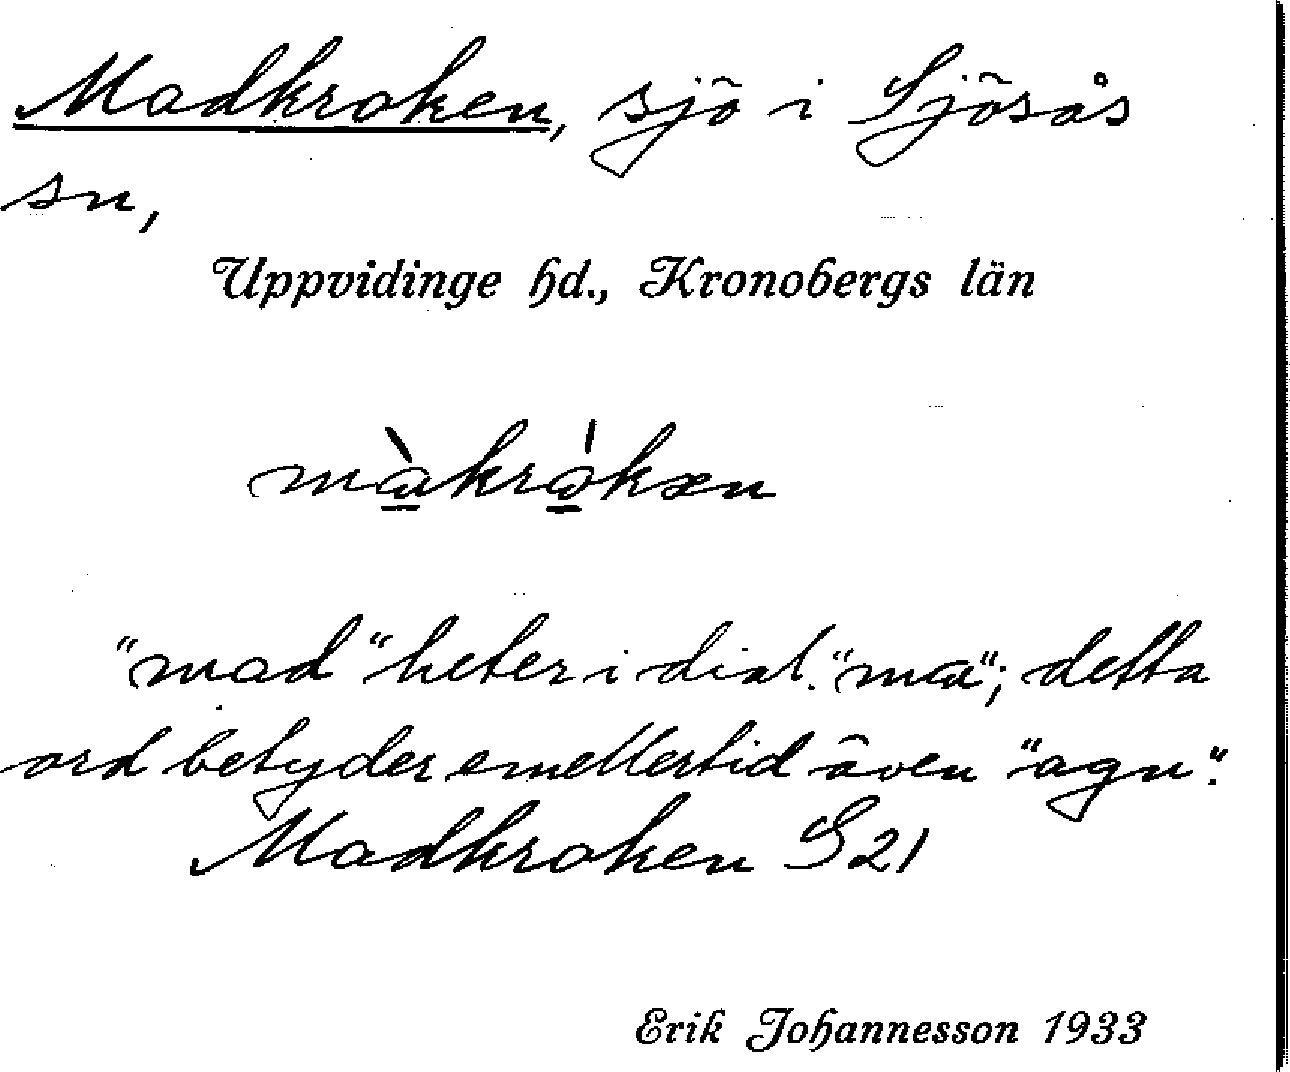 Madkroken, sjö i Sjösås
sn,
Uppvidinge hd., Kronobergs län
màkrȯkæn
"mad" heter i dial. "ma"; detta
ord betyder emellertid även "agn".
Madkroken S21
Erik Johannesson 1933